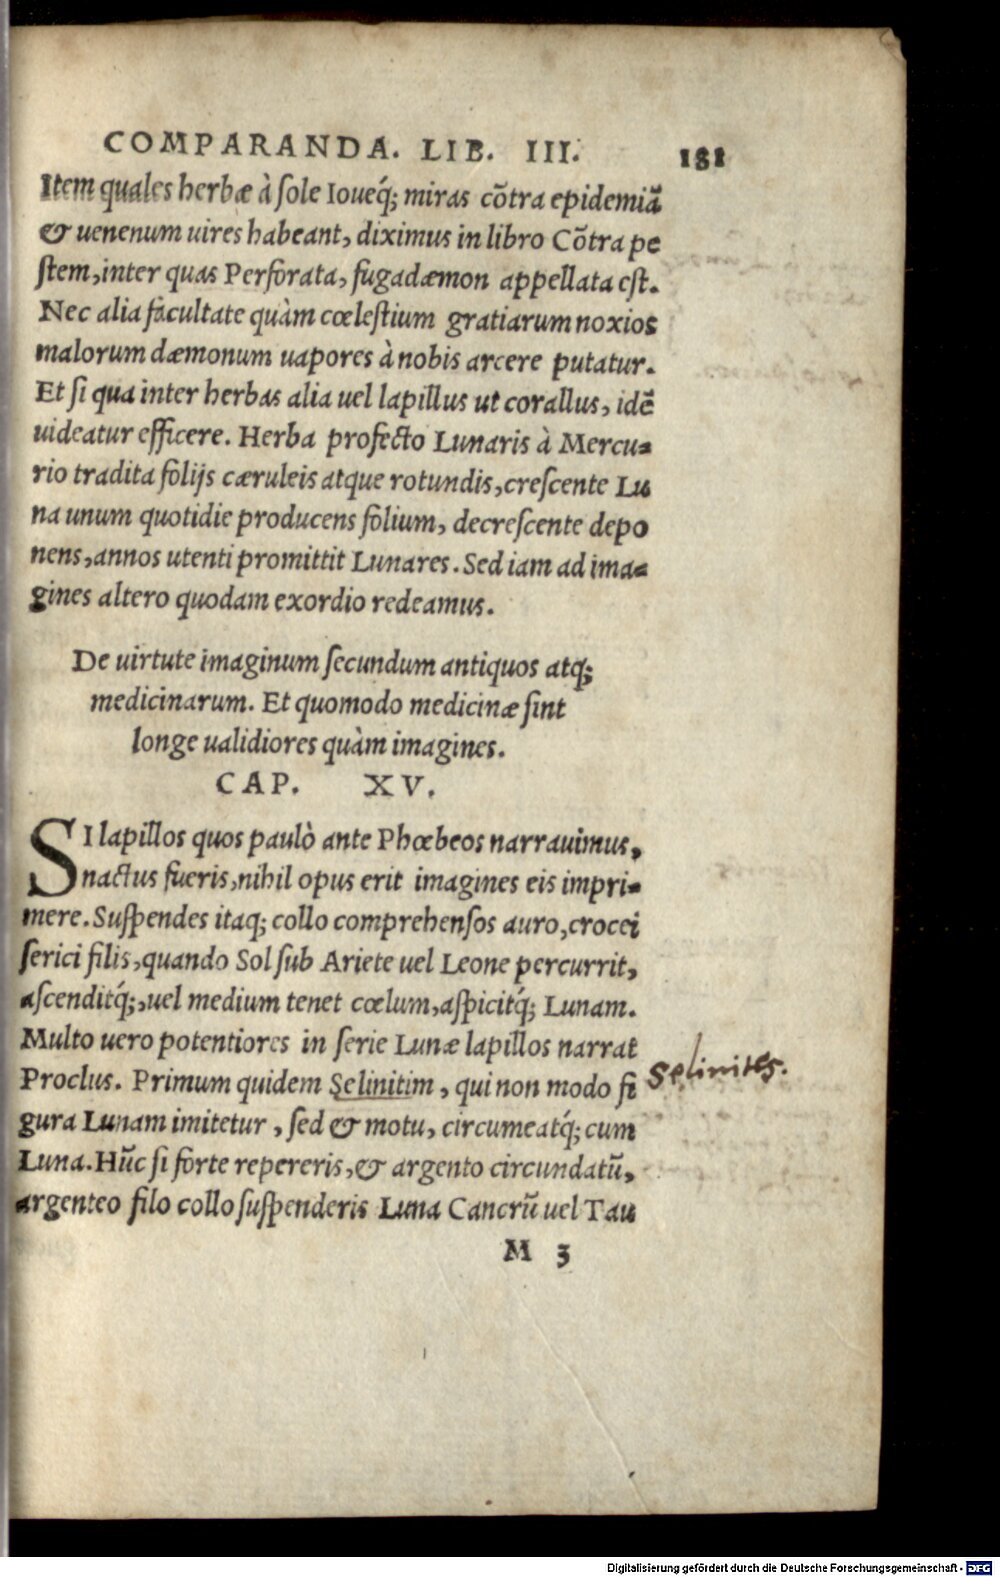 COMPARANDA. LIB. III. 181
Item quales herbæ à ſole Ioueq́; miras cõtra epidemiã
& uenenum uires habeant, diximus in libro Cõtra pe
ſtem, inter quas Perforata, fugadæmon appellata eſt.
Nec alia facultate quàm cœleſtium gratiarum noxios
malorum dæmonum uapores à nobis arcere putatur.
Et ſi qua inter herbas alia uel lapillus ut corallus, idẽ
uideatur efficere. Herba profecto Lunaris à Mercu-
rio tradita folijs cæruleis atque rotundis, creſcente Lu
na unum quotidie producens folium, decreſcente depo
nens, annos utenti promittit Lunares. Sed iam ad ima-
gines altero quodam exordio redeamus.
De uirtute imaginum ſecundum antiquos atq;
medicinarum. Et quomodo medicinæ ſint
longe ualidiores quàm imagines.
CAP. XV.
SI lapillos quos paulò ante Phœbeos narrauimus,
nactus fueris, nihil opus erit imagines eis impri-
mere. Suſpendes itaq; collo comprehenſos auro, crocei
ſerici filis, quando Sol ſub Ariete uel Leone percurrit,
aſcenditq́;, uel medium tenet cœlum, aſpicitq́; Lunam.
Multo uero potentiores in ſerie Lunæ lapillos narrat
Proclus. Primum quidem Selinitim, qui non modo fi
gura Lunam imitetur, ſed & motu, circumeatq́; cum
Luna. Hũc ſi forte repereris, & argento circundatũ,
argenteo filo collo ſuſpenderis Luna Cancrũ uel Tau
Selinites.
M 3
Digitalisierung gefördert durch die Deutsche Forschungsgemeinschaft - DFG